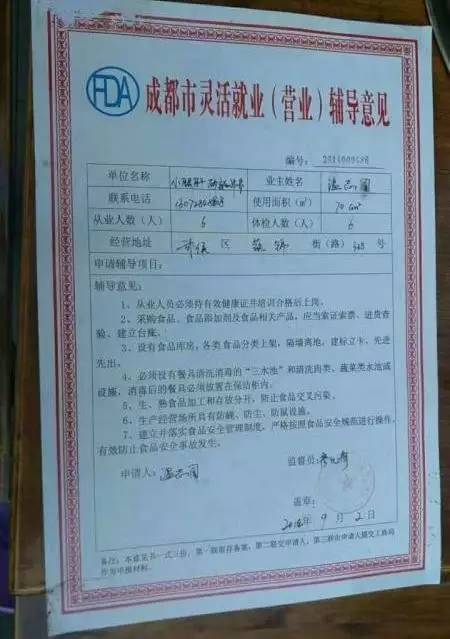 FDA 成都市灵活就业（营业）辅导意见
编号：
单位名称 业主姓名
联系电话 使用面积（㎡） 70
从业人数（人） 6 体检人数（人） 6
经营地址 区 街（路） 号
申请辅导项目：
辅导意见：
1、从业人员必须持有效健康证并培训合格后上岗。
2、采购食品、食品添加剂及食品相关产品，应当索证索票、进货查
验、建立台账。
3、设有食品库房，各类食品分类上架，隔墙离地，建标立卡、先进
先出。
4、必须设有餐具清洗消毒的“三水池”和清洗肉类、蔬菜类水池或
设施，消毒后的餐具必须放置在保洁柜内。
5、生、熟食品加工和存放分开，防止食品交叉污染。
6、生产经营场所具有防蝇、防尘、防鼠设施。
7、建立并落实食品安全管理制度，严格按照食品安全规范进行操作，
有效防止食品安全事故发生。
申请人： 监督员：
盖章：
年 9 月 2 日
备注：本意见书一式三份，第一联留存备案，第二联交申请人，第三联由申请人提交工商局
作为申报材料。